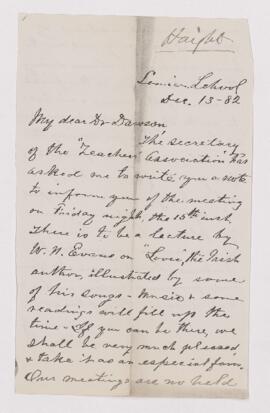 Haight
Senior School
Dec. 13-82
My dear Dr Dawson
The secretary
of the "Teachers' Association" has
asked me to write you a note
to inform you of the meeting
on Friday night, the 15th inst.
There is to be a lecture by
W. N. Evans on "Lover", the Irish
author, illustrated by some
of his songs - Music & some
readings will fill up the
time - If you can be there, we
shall be very much pleased
& take it as an especial favor.
Our meetings are no held